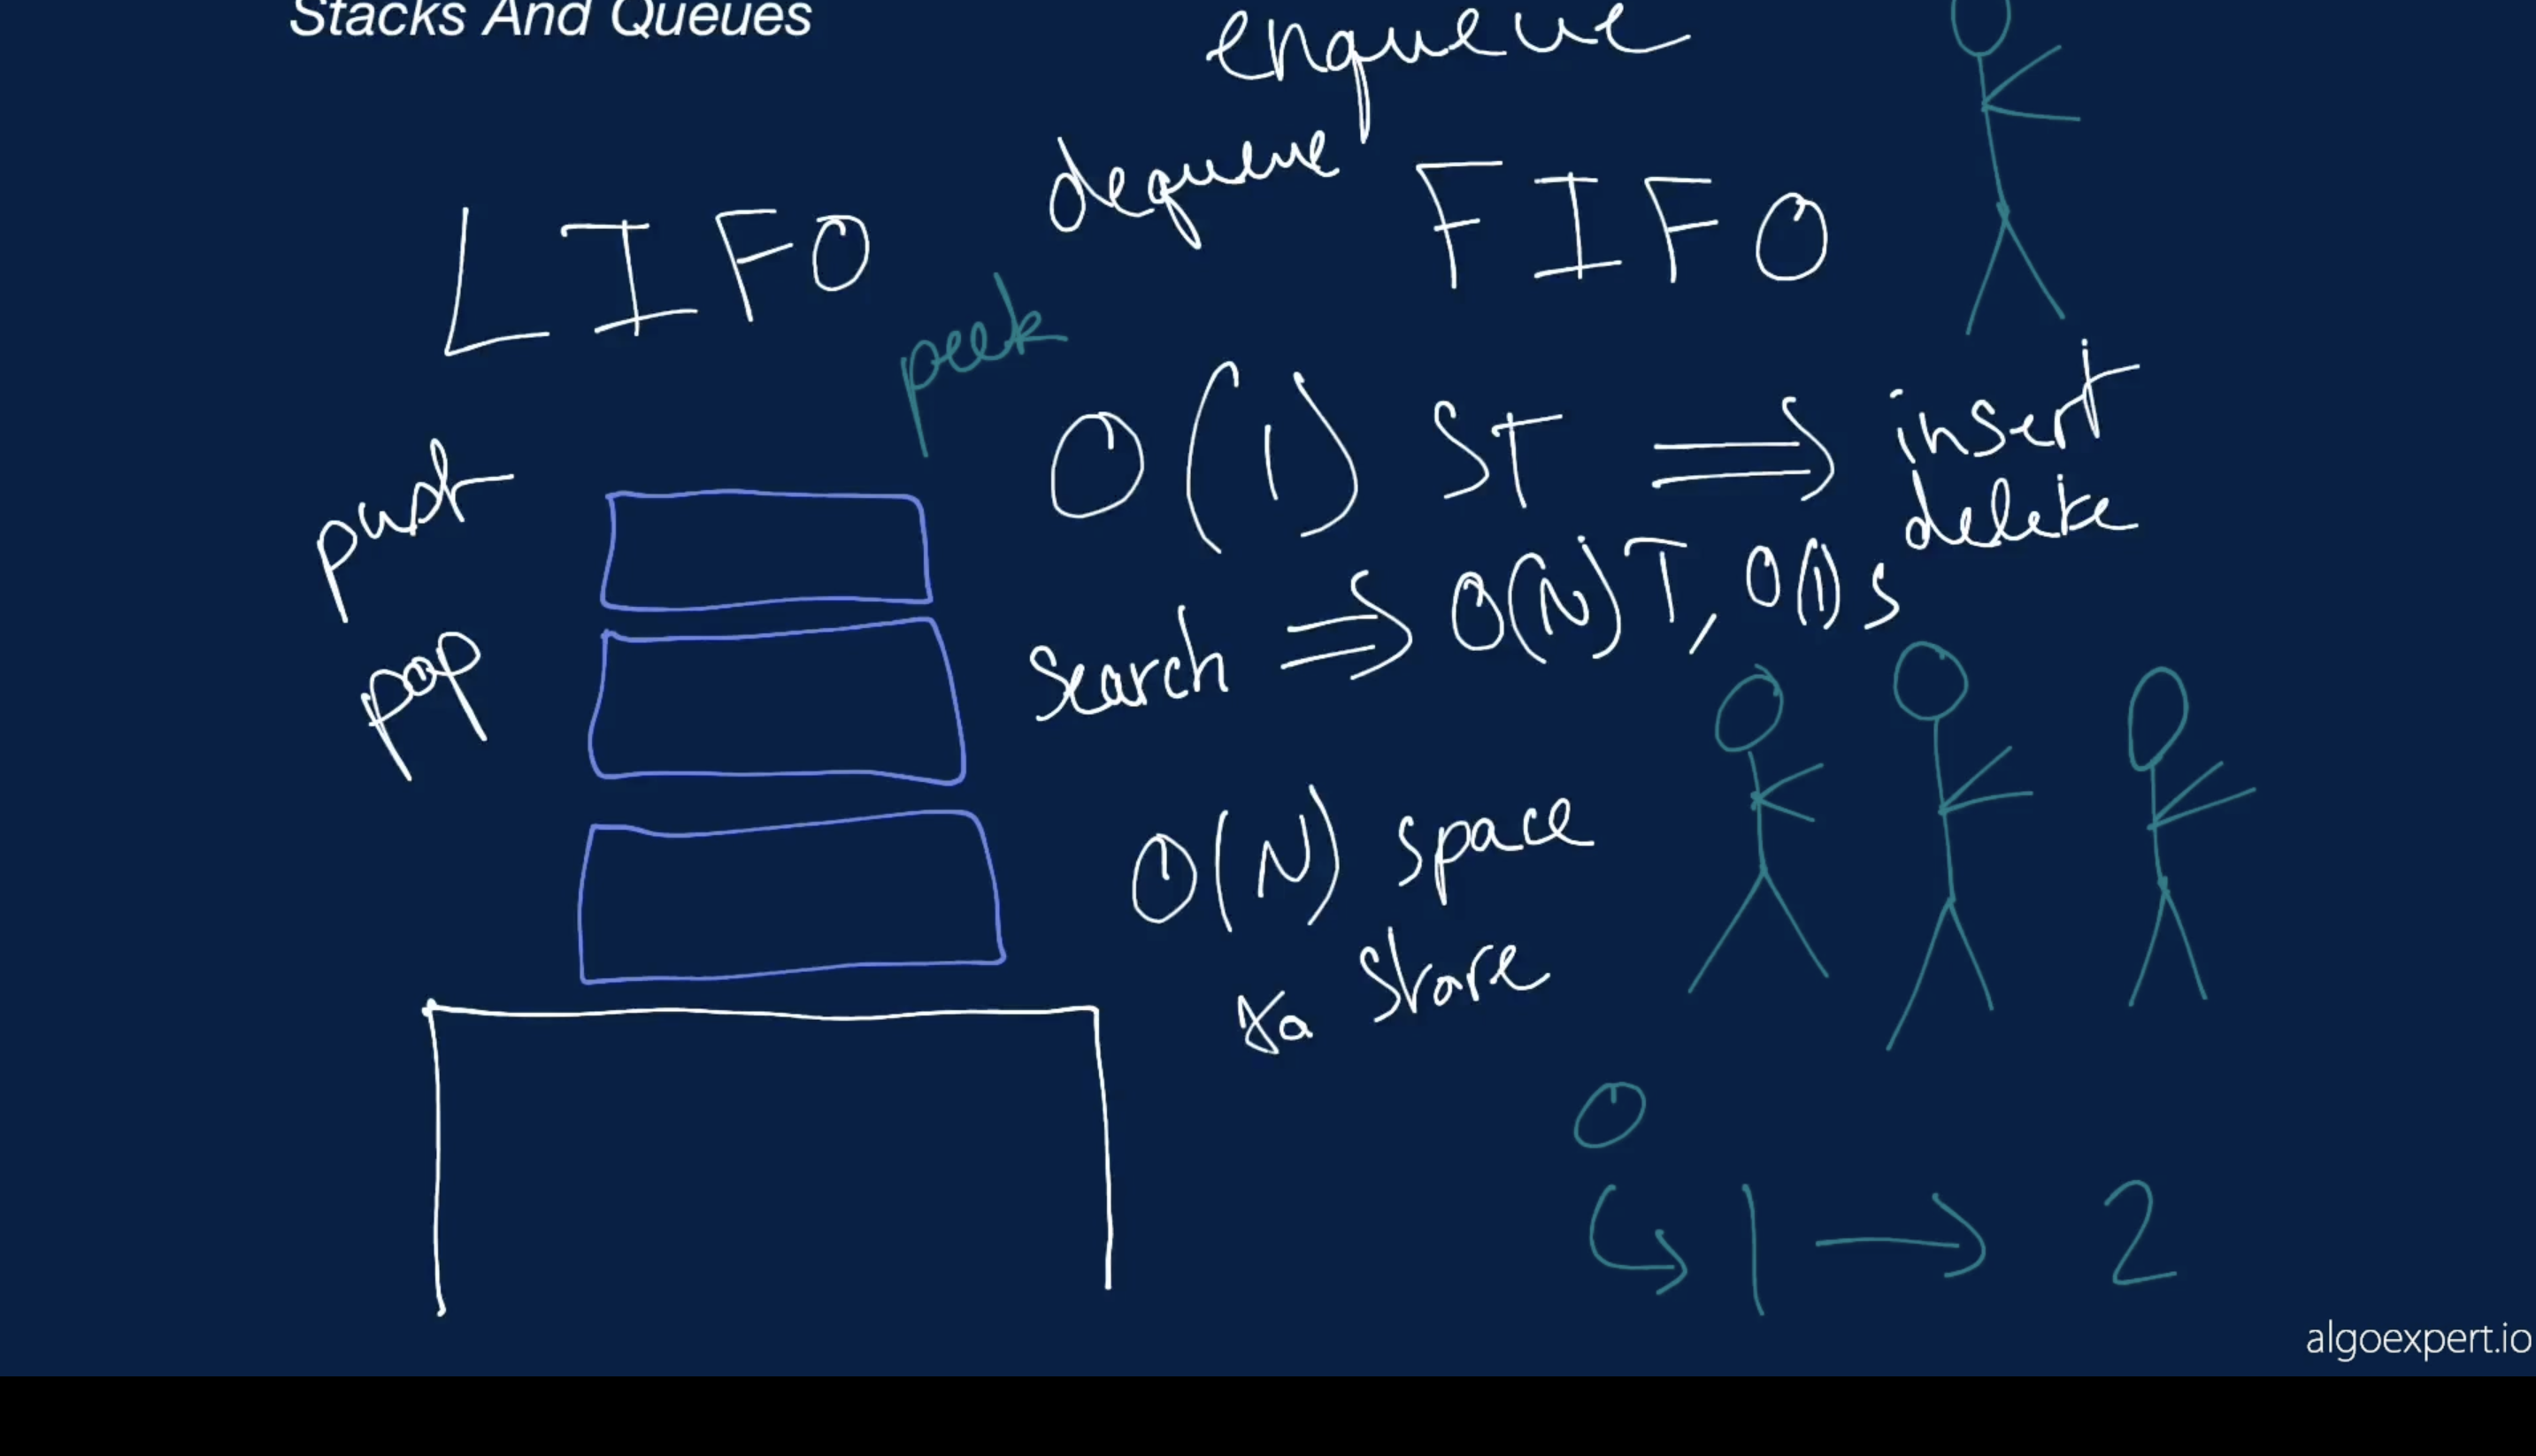 Stacks And Queues
enqueue
dequeue
LIFO
FIFO
peek
push
pop
O(1) ST ⇒ insert
delete
Search ⇒ O(N)T, O(1)S
O(N) space
to store
0
↪ 1 → 2
algoexpert.io